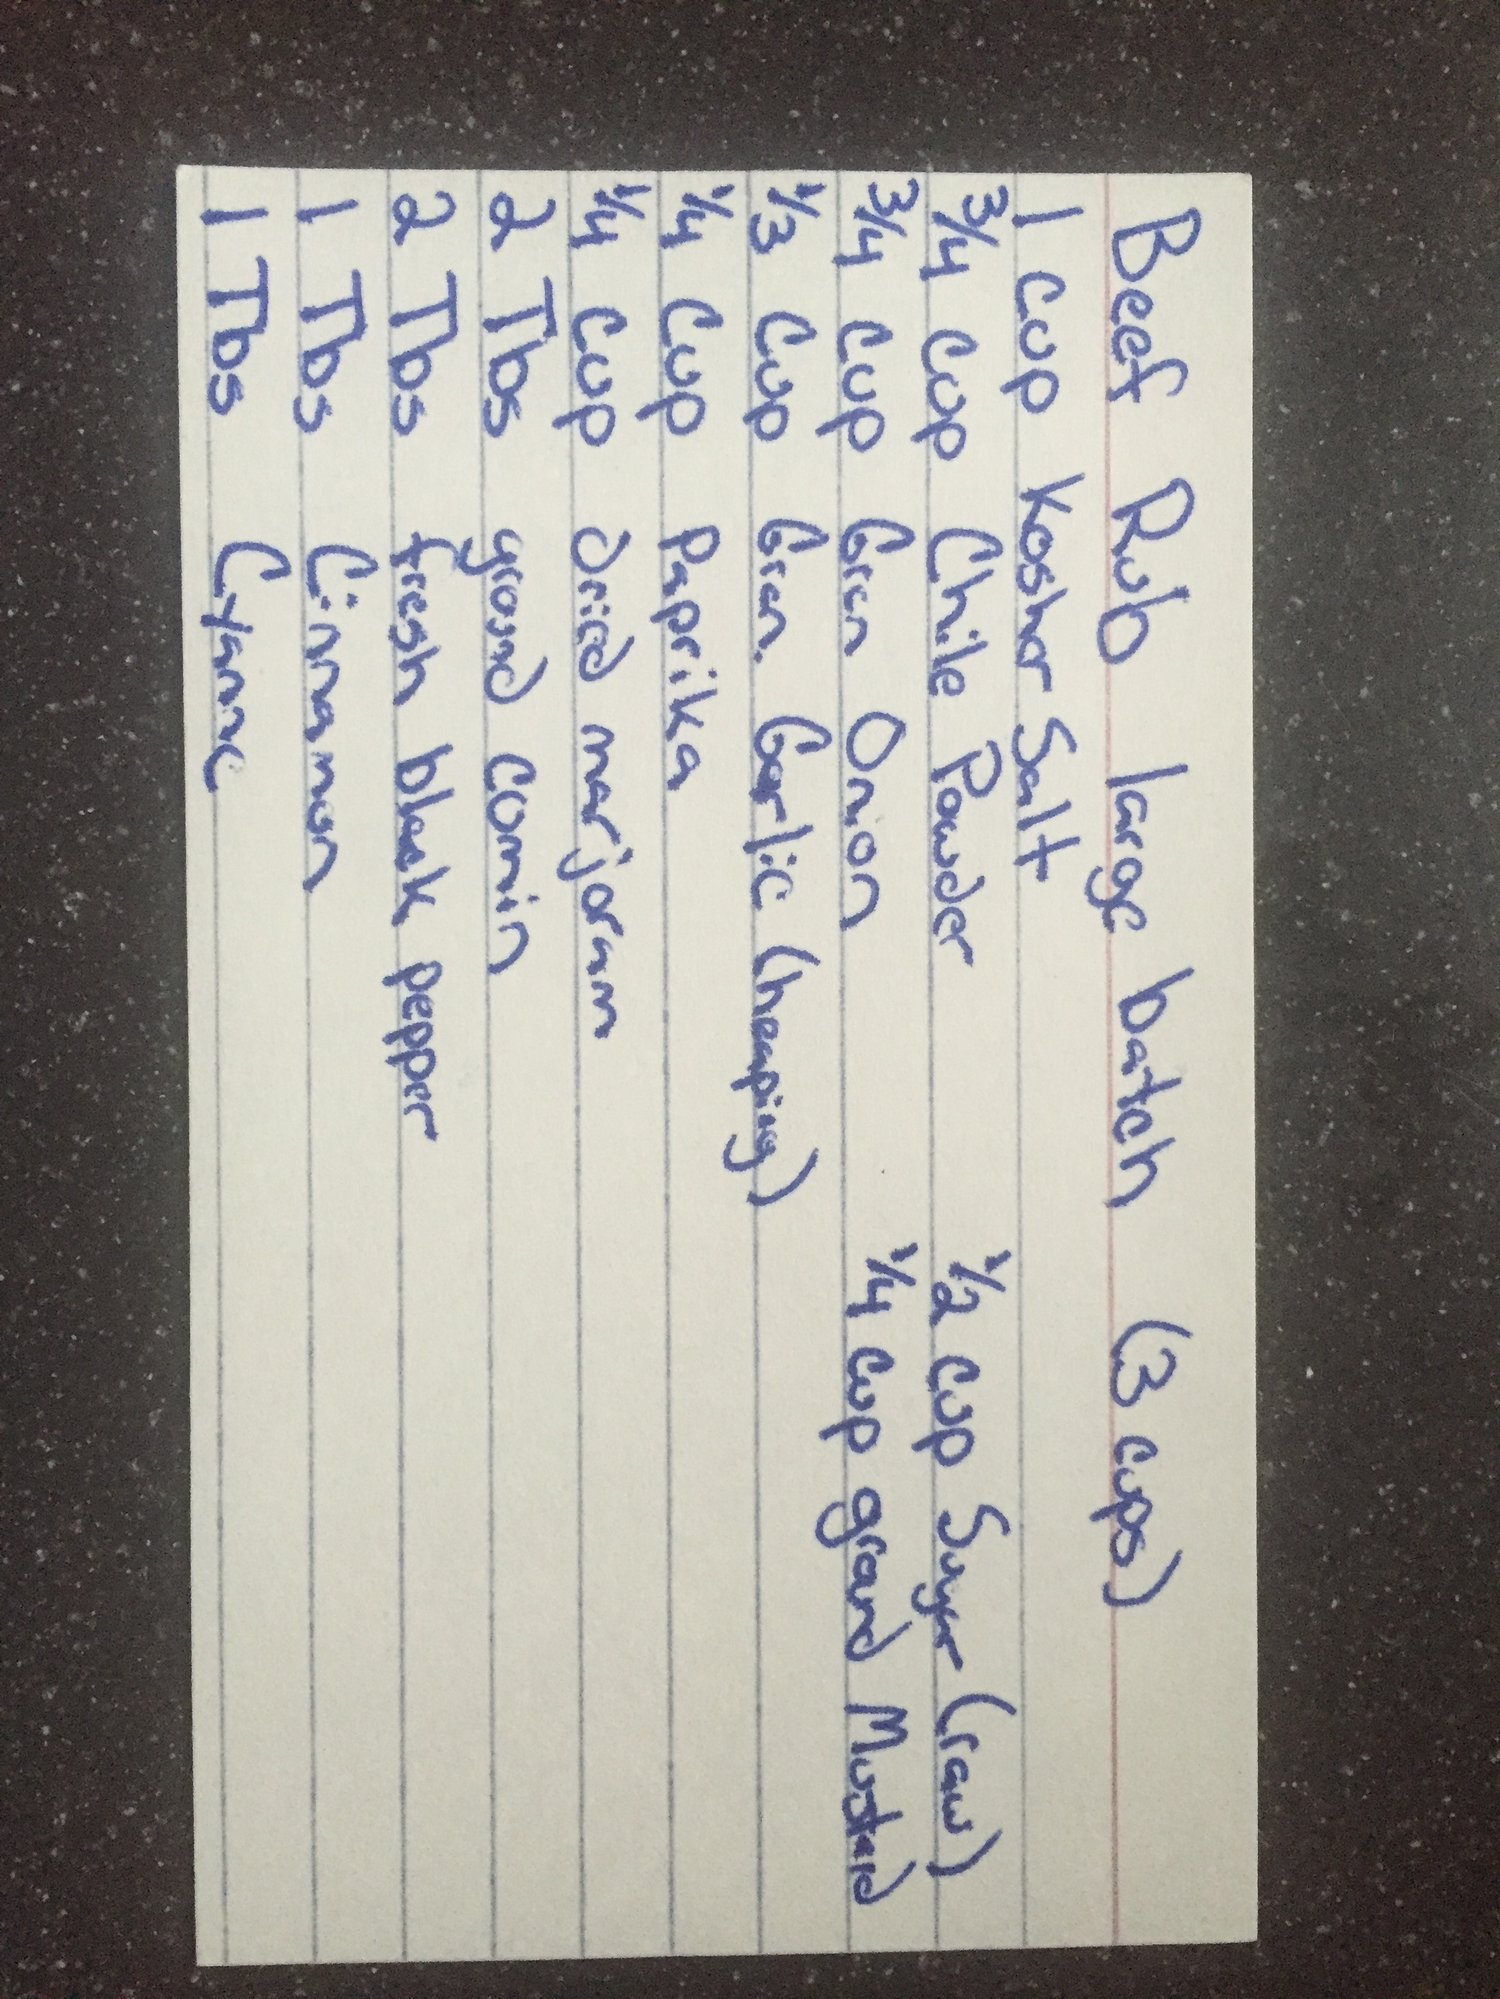 Beef Rub large batch (3 cups)
1 cup Kosher Salt
3/4 cup Chile Powder 1/2 cup Sugar (raw)
3/4 cup Gran Onion 1/4 cup ground Mustard
1/3 cup Gran. Garlic (heaping)
1/4 cup Paprika
1/4 cup dried marjoram
2 Tbs ground comin
2 Tbs fresh black pepper
1 Tbs Cinnamon
1 Tbs Cyanne